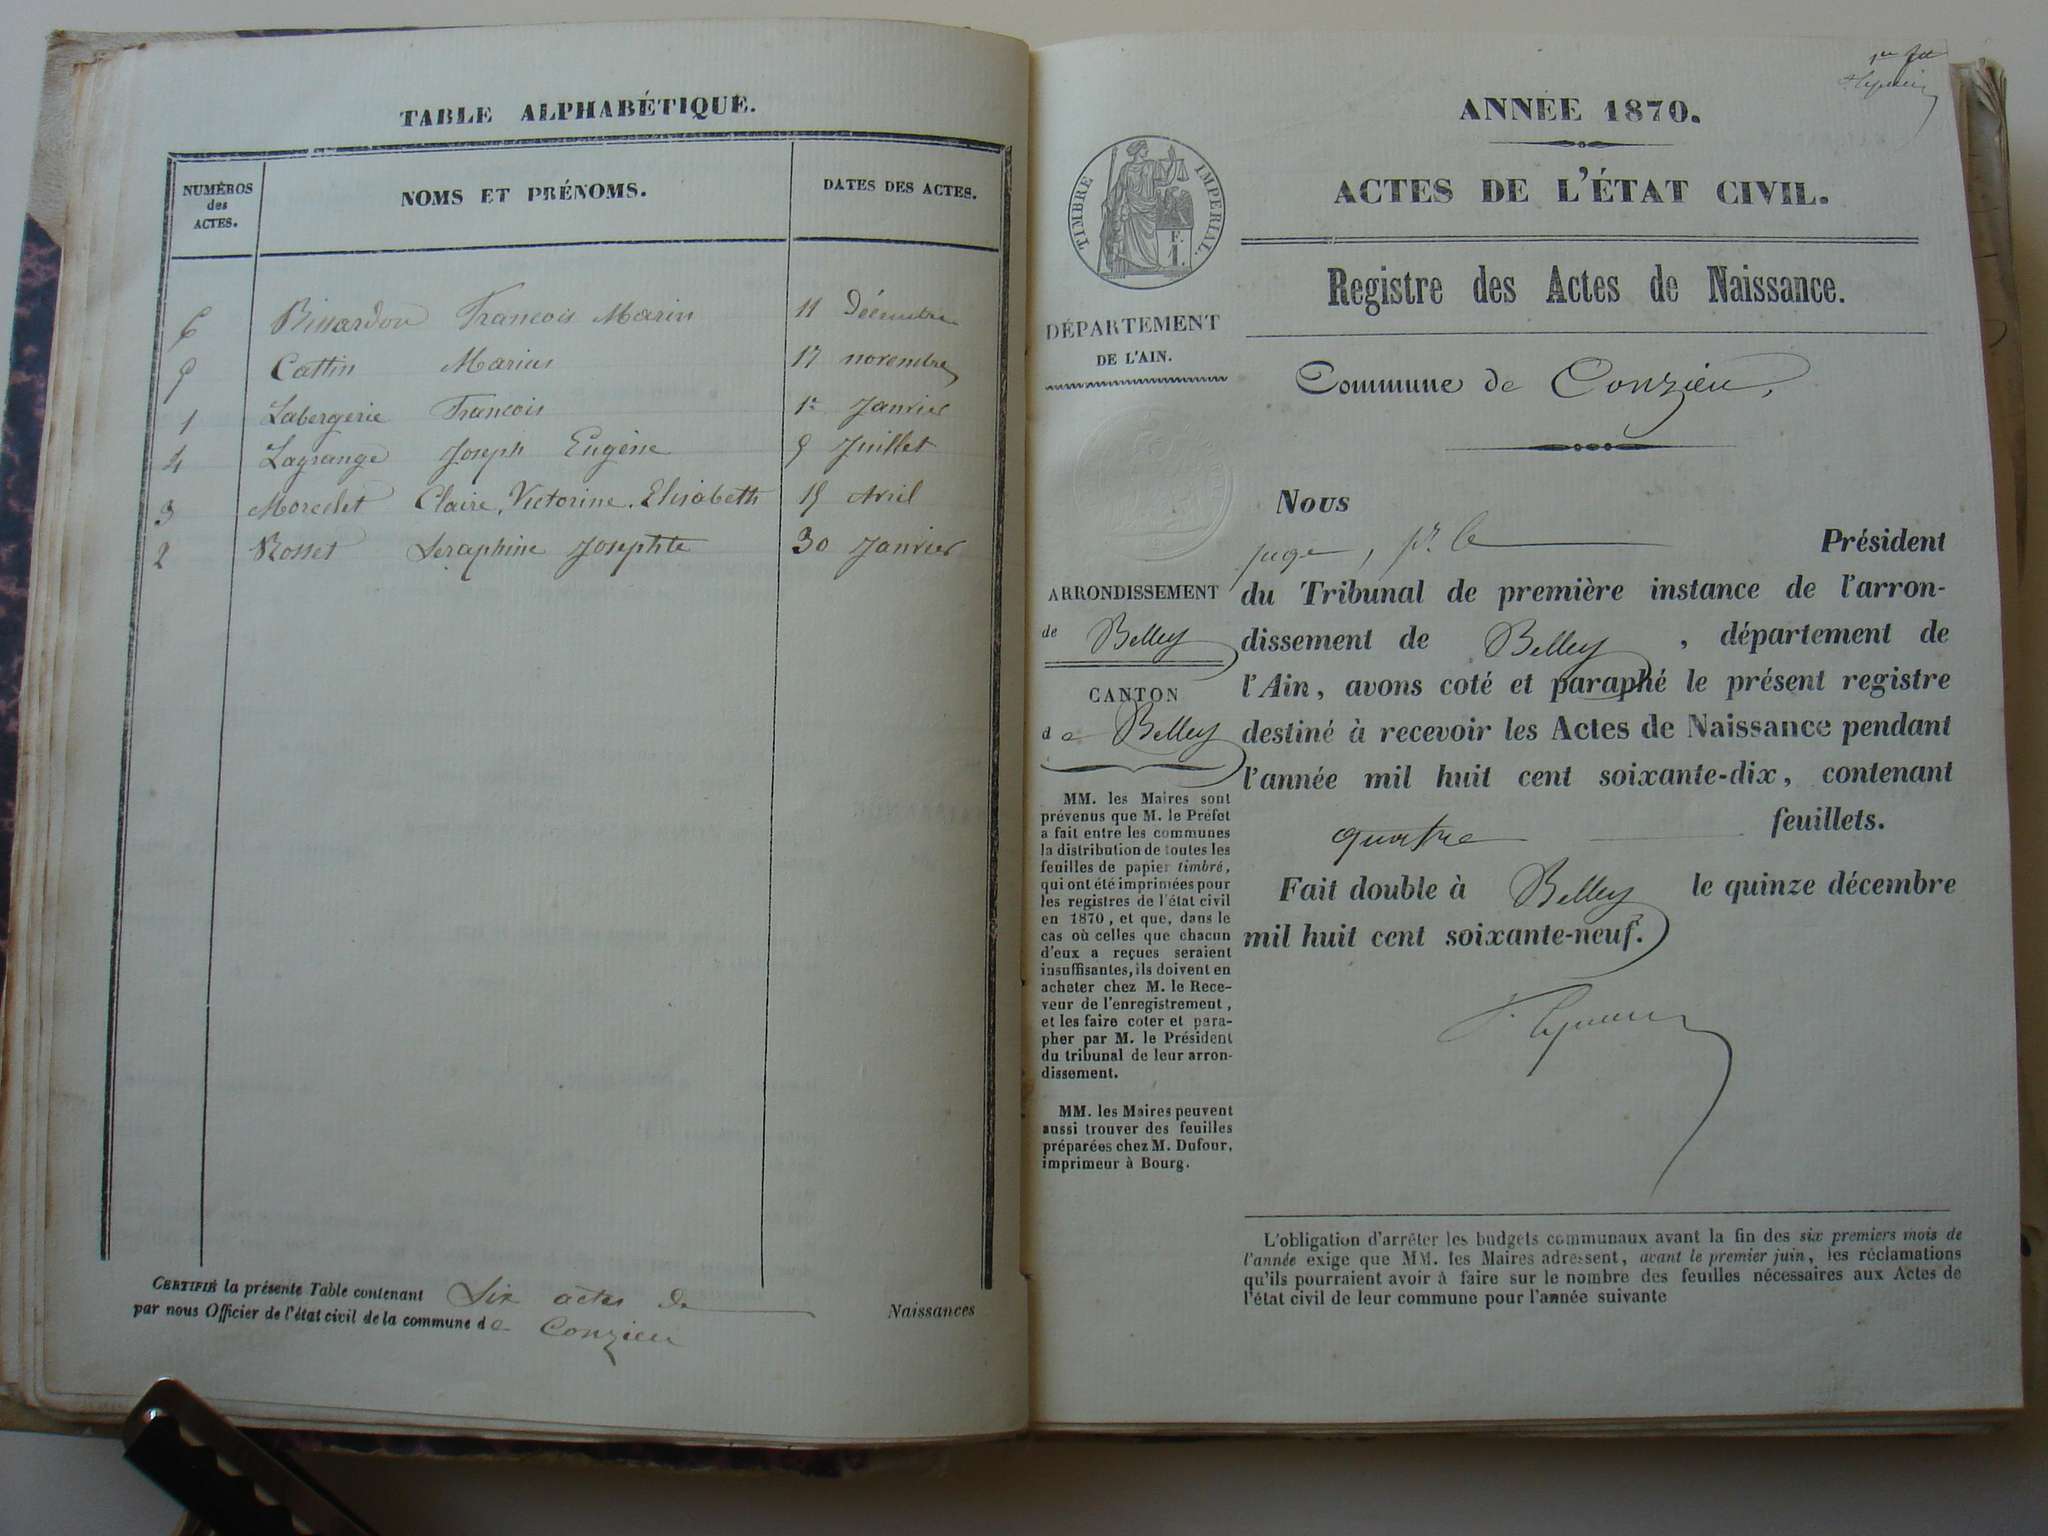 TABLE ALPHABÉTIQUE.
NUMÉROS des ACTES.
NOMS ET PRÉNOMS.
DATES DES ACTES.
6 François Marin 11 Décembre
Cattin Marius 17 novembre
1 Labergerie François 1er Janvier
4 Lagrange Joseph Eugène 9 Juillet
3 Claire, Victorine, Elisabeth 15 Avril
2 Rosset Seraphine Josephte 30 Janvier
CERTIFIÉ la présente Table contenant Six actes de Naissances
par nous Officier de l'état civil de la commune de Conzieu
ANNÉE 1870.
ACTES DE L'ÉTAT CIVIL.
TIMBRE IMPERIAL.
F. 1.
Registre des Actes de Naissance.
DÉPARTEMENT
DE L'AIN.
Commune de Conzieu,
Nous
juge, pr. le Président
du Tribunal de première instance de l'arron-
dissement de Belley, département de
l'Ain, avons coté et paraphé le présent registre
destiné à recevoir les Actes de Naissance pendant
l'année mil huit cent soixante-dix, contenant
quatre feuillets.
Fait double à Belley le quinze décembre
mil huit cent soixante-neuf.
ARRONDISSEMENT
de Belley
CANTON
de Belley
MM. les Maires sont
prévenus que M. le Préfet
a fait entre les communes
la distribution de toutes les
feuilles de papier timbré,
qui ont été imprimées pour
les registres de l'état civil
en 1870, et que, dans le
cas où celles que chacun
d'eux a reçues seraient
insuffisantes, ils doivent en
acheter chez M. le Rece-
veur de l'enregistrement,
et les faire coter et para-
pher par M. le Président
du tribunal de leur arron-
dissement.
MM. les Maires peuvent
aussi trouver des feuilles
préparées chez M. Dufour,
imprimeur à Bourg.
L'obligation d'arrêter les budgets communaux avant la fin des six premiers mois de
l'année exige que MM. les Maires adressent, avant le premier juin, les réclamations
qu'ils pourraient avoir à faire sur le nombre des feuilles nécessaires aux Actes de
l'état civil de leur commune pour l'année suivante